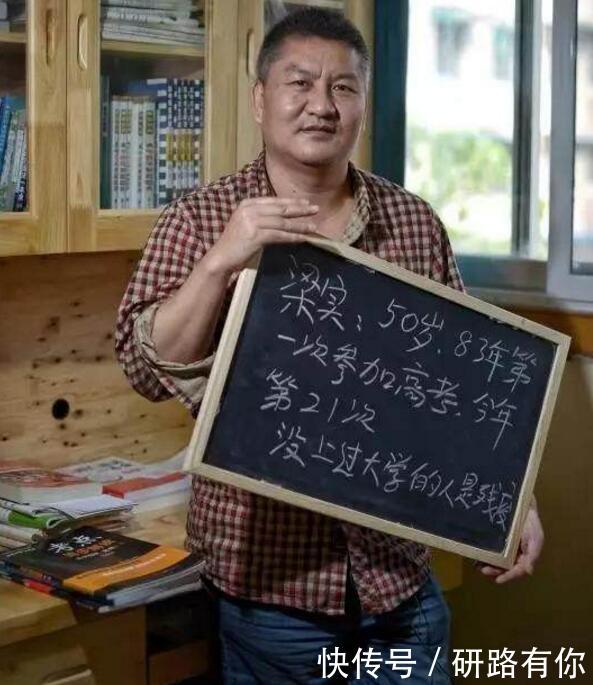 梁实，50岁，83年第
一次参加高考，今年
第21次
没上过大学的人是残疾
快传号 / 研路有你